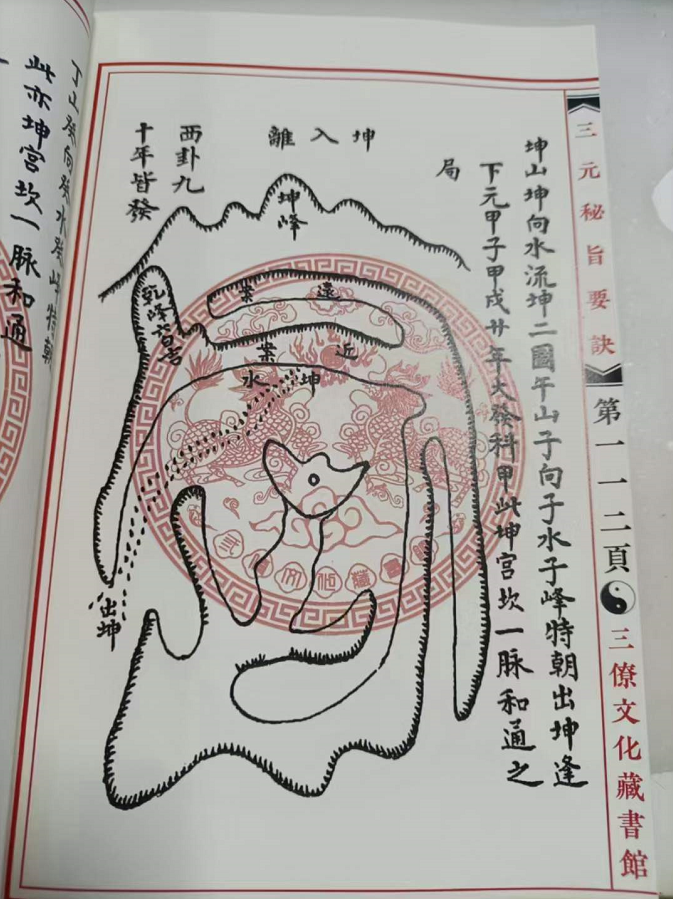 三元秘旨要訣
第一一二頁
三僚文化藏書館
坤山坤向水流坤二圖午山子向子水子峰特朝出坤逢
下元甲子甲戍廿年大發科甲此坤宮坎一脈和通之
局
坤入離
西卦九
十年皆發
坤峰
乾峰皆吉
遠案
近案
坤水
出坤
丁山癸向癸水癸峰特朝
此亦坤宮坎一脈和通